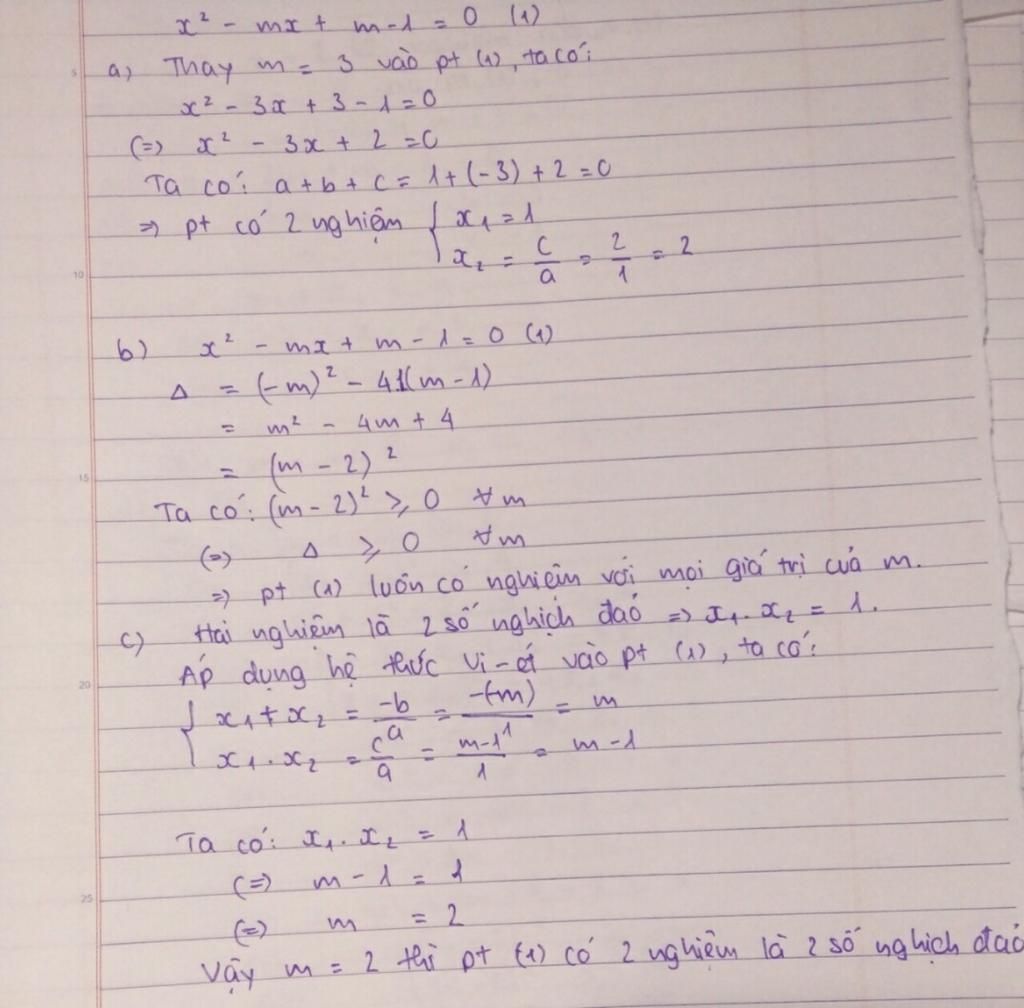 x² - mx + m - 1 = 0 (1)
a) Thay m = 3 vào pt (1), ta có:
x² - 3x + 3 - 1 = 0
(=) x² - 3x + 2 = 0
Ta có: a + b + c = 1 + (-3) + 2 = 0
=> pt có 2 nghiệm { x₁ = 1
x₂ = c/a = 2/1 = 2
b) x² - mx + m - 1 = 0 (1)
Δ = (-m)² - 4.1(m - 1)
= m² - 4m + 4
= (m - 2)²
Ta có: (m - 2)² ≥ 0 ∀m
(=) Δ ≥ 0 ∀m
=> pt (1) luôn có nghiệm với mọi giá trị của m.
c) Hai nghiệm là 2 số nghịch đảo => x₁. x₂ = 1.
Áp dụng hệ thức Vi-ét vào pt (1), ta có:
{ x₁ + x₂ = -b/a = -(-m)/1 = m
x₁. x₂ = c/a = m-1/1 = m - 1
Ta có: x₁. x₂ = 1
(=) m - 1 = 1
(=) m = 2
Vậy m = 2 thì pt (1) có 2 nghiệm là 2 số nghịch đảo
5
10
15
20
25